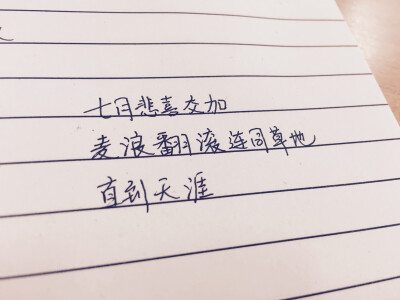 七月悲喜交加
麦浪翻滚连同草地
直到天涯